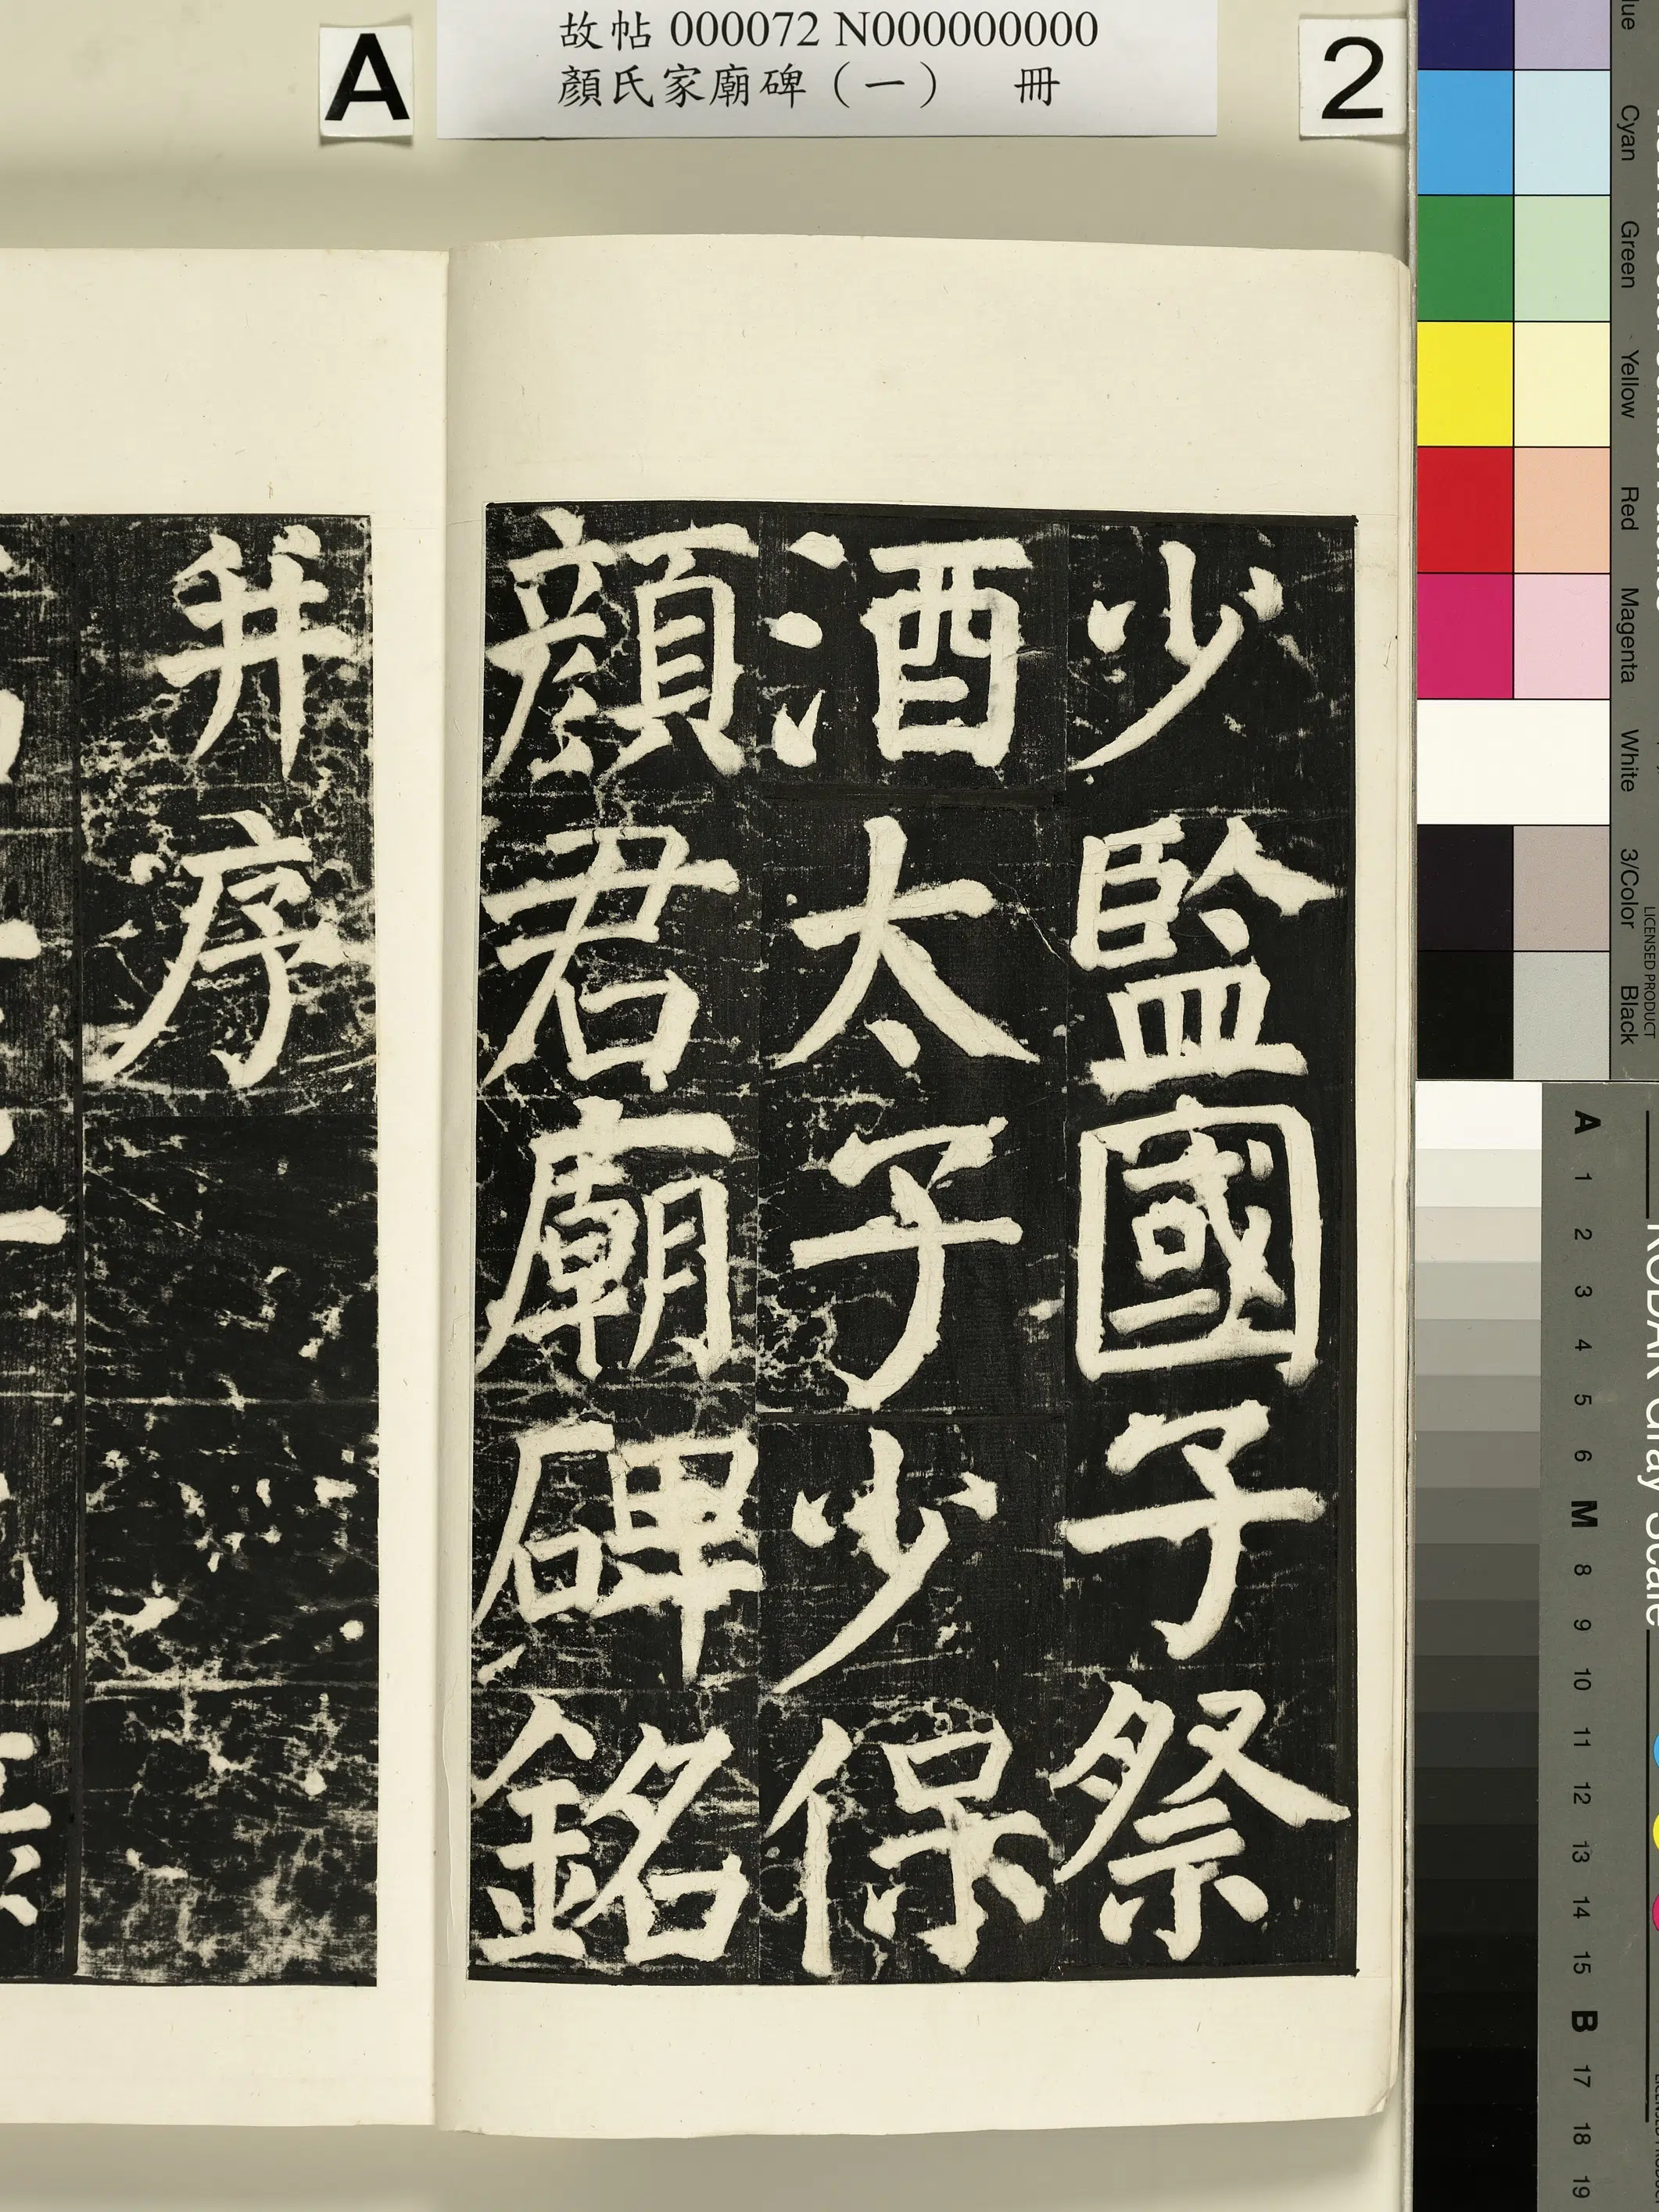 故帖 000072 N000000000
顏氏家廟碑（一） 冊
A
2
少監國子祭
酒太子少保
顏君廟碑銘
并序
Cyan
Green
Yellow
Red
Magenta
White
3/Color
Black
LICENSED PRODUCT
KODAK Gray Scale
A 1 2 3 4 5 6 M 8 9 10 11 12 13 14 15 B 17 18 19